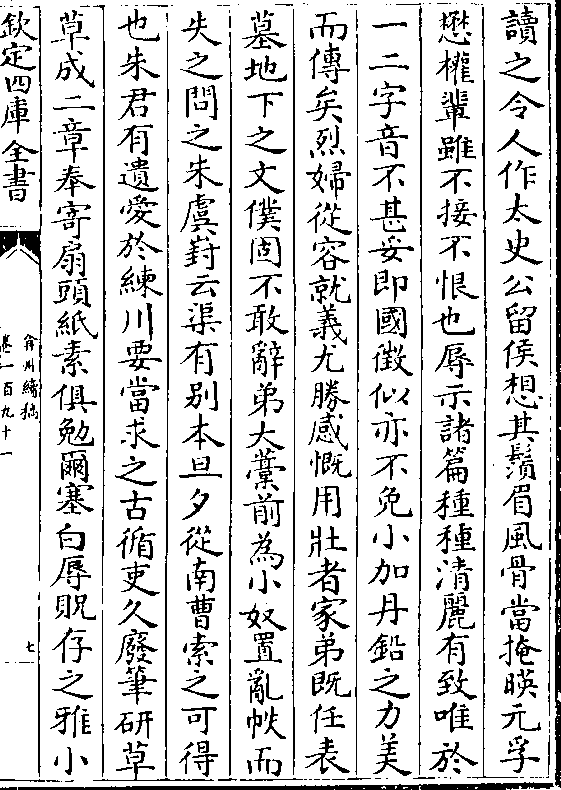 讀之令人作太史公留侯想其鬚眉風骨當掩暎元孚
懋權輩雖不接不恨也辱示諸篇種種清麗有致唯於
一二字音不甚妥即國徵似亦不免小加丹鉛之力美
而傳矣烈婦從容就義尤勝感慨用壯者家弟既任表
墓地下之文僕固不敢辭弟大藁前為小奴置亂帙而
失之問之朱虞葑云渠有别本旦夕從南曹索之可得
也朱君有遺愛於練川要當求之古循吏久廢筆研草
草成二章奉寄扇頭紙素俱勉爾塞白辱貺存之雅小
欽定四庫全書
弇州續稿
卷一百九十一
七